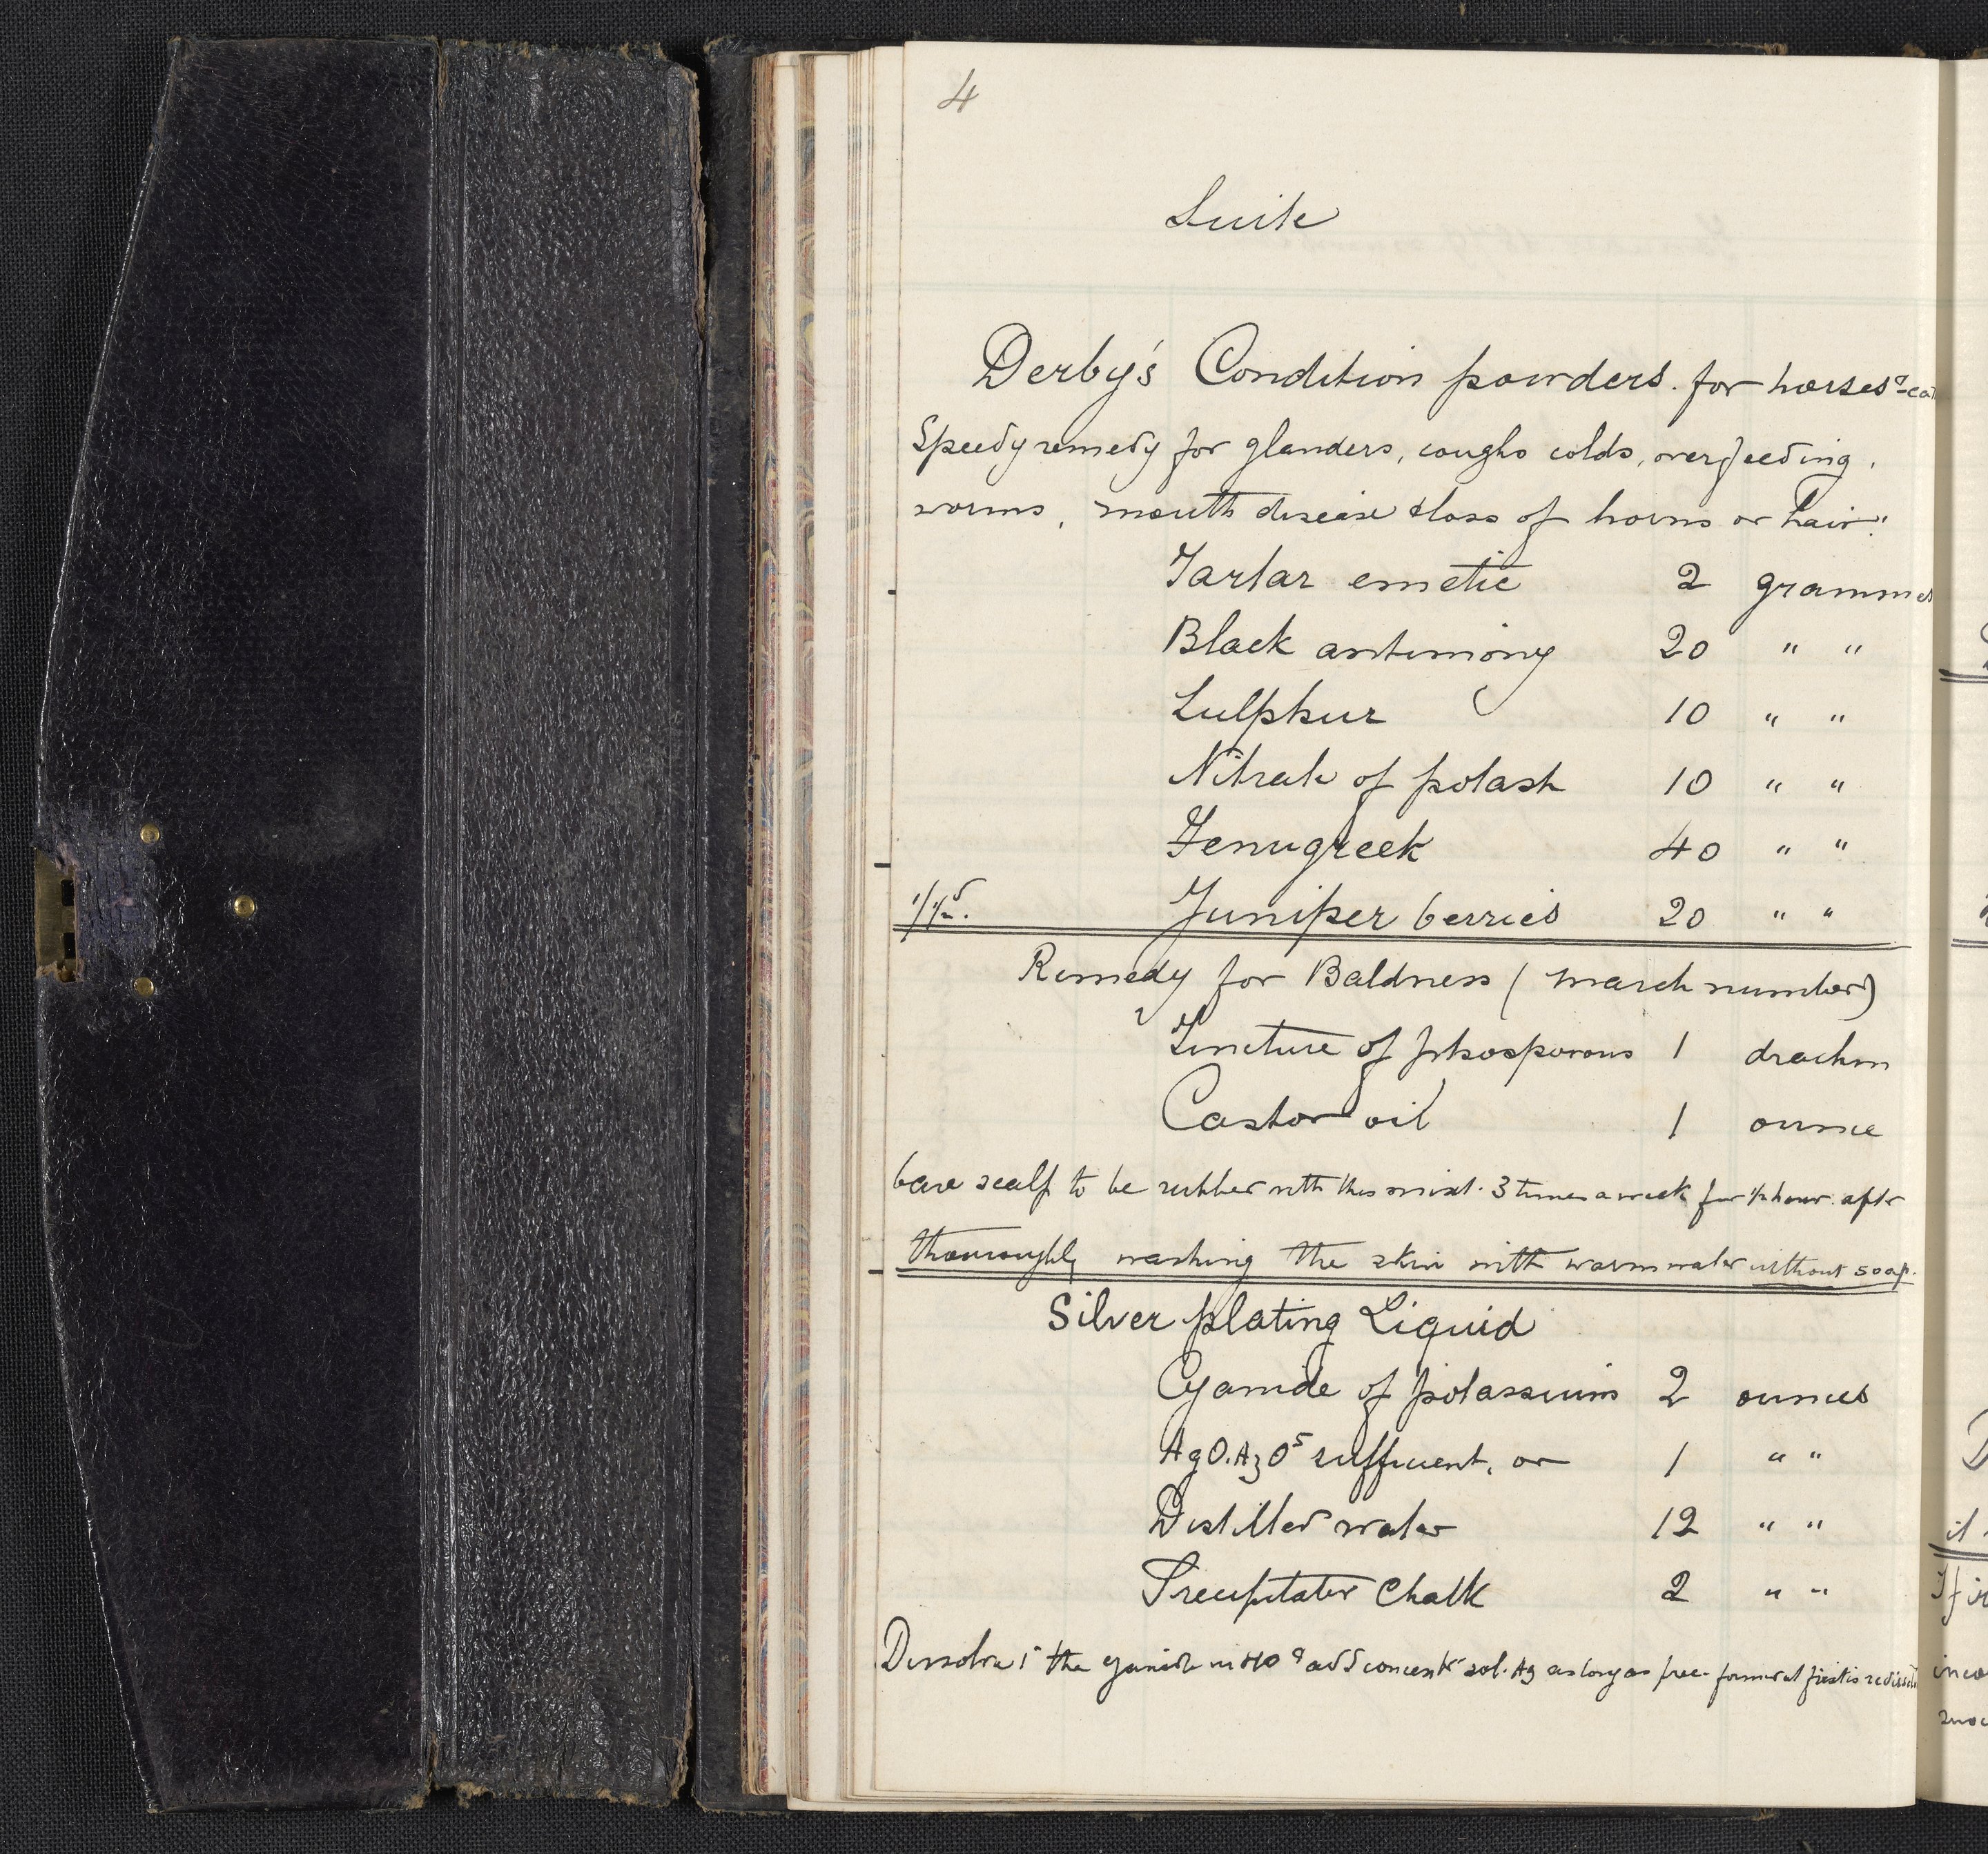 4
Suite
Derby's Condition powders. for horses & cat
Speedy remedy for glanders, coughs colds, overfeeding,
worms, mouth disease & loss of horns or hair"
Tartar emetic 2 grammes
Black antimony 20 " "
Sulphur 10 " "
Nitrate of potash 10 " "
Fenugreek 40 " "
Juniper berries 20 " "
Remedy for Baldness ( march number)
Tincture of phosporous 1 drachm
Castor oil 1 ounce
bare scalp to be rubbed with this mixt. 3 times a week for 1/2 hour. after
thouroughly washing the skin with warm water without soap.
Silver plating Liquid
Cyanide of potassium 2 ounces
AgO.AzO5 sufficient, or 1 " "
Distilled water 12 " "
Precipitated Chalk 2 " "
Dissolve the cyanide in HO & add concentd sol. Ag as long as prec. formed at first is redissd